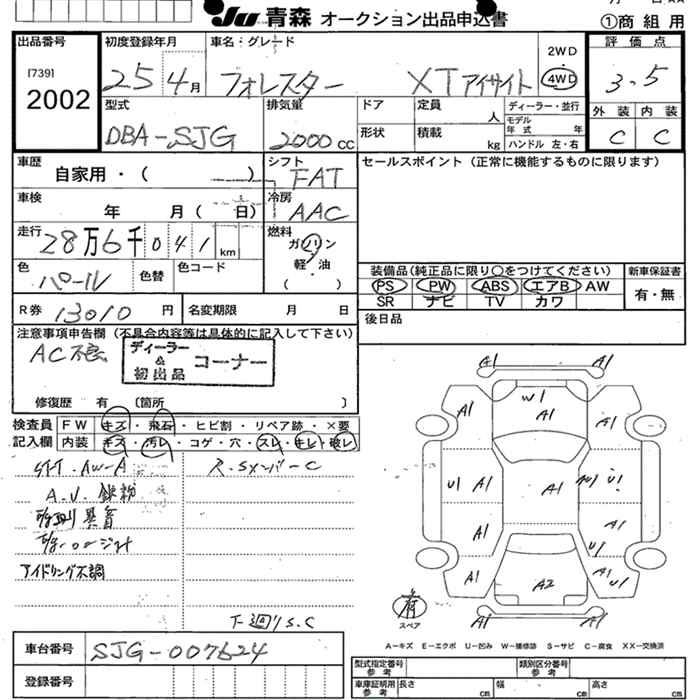 Ju 青森 オークション出品申込書
①商組用
出品番号
[739]
2002
初度登録年月
25 4月
車名・グレード
フォレスター XTアイサイト
2WD
4WD
評価点
3.5
外装 内装
C C
型式
DBA-SJG
排気量
2000 CC
ドア
形状
定員 人
積載 kg
ディーラー・並行
モデル年式 年
ハンドル 左・右
車歴
自家用・( )
シフト
FAT
車検
年 月( 日)
冷房
AAC
走行
28万6千041 km
燃料
ガソリン
軽・油
( )
色
パール
色替
色コード
R券 13010 円
名変期限 月 日
セールスポイント(正常に機能するものに限ります)
装備品(純正品に限り○をつけてください)
PS PW ABS エアB AW
SR ナビ TV カワ
新車保証書
有・無
後日品
注意事項申告欄(不具合内容等は具体的に記入して下さい)
AC不良
ディーラー
&
初出品
コーナー
修復歴 有 (箇所 )
検査員記入欄
FW キズ・飛石・ヒビ割・リペア跡・×要
内装 キズ・汚レ・コゲ・穴・スレ・キレ・破レ
AW-A
A.U. 鉄粉
異音
アイドリング不調
下廻りS.C
A1 A1
A1 W1 A1 A1
U1 A1 A1 U1
A1 A1
U1
A1 A2 A1 U1
A1 A1
有
スペア
A-キズ E-エクボ U-凹み W-補修跡 S-サビ C-腐食 XX-交換済
車台番号
SJG-007624
登録番号
型式指定番号 参考
類別区分番号 参考
車庫証明用 参考 長さ cm 幅 cm 高さ cm